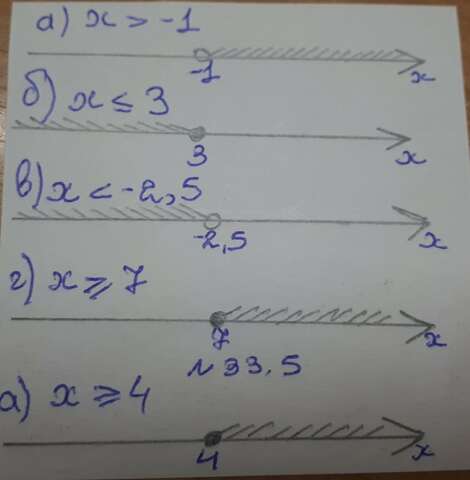 а) x > -1
-1
x
б) x ≤ 3
3
x
в) x < -2,5
-2,5
x
г) x ⩾ 7
7
x
№33.5
а) x ⩾ 4
4
x